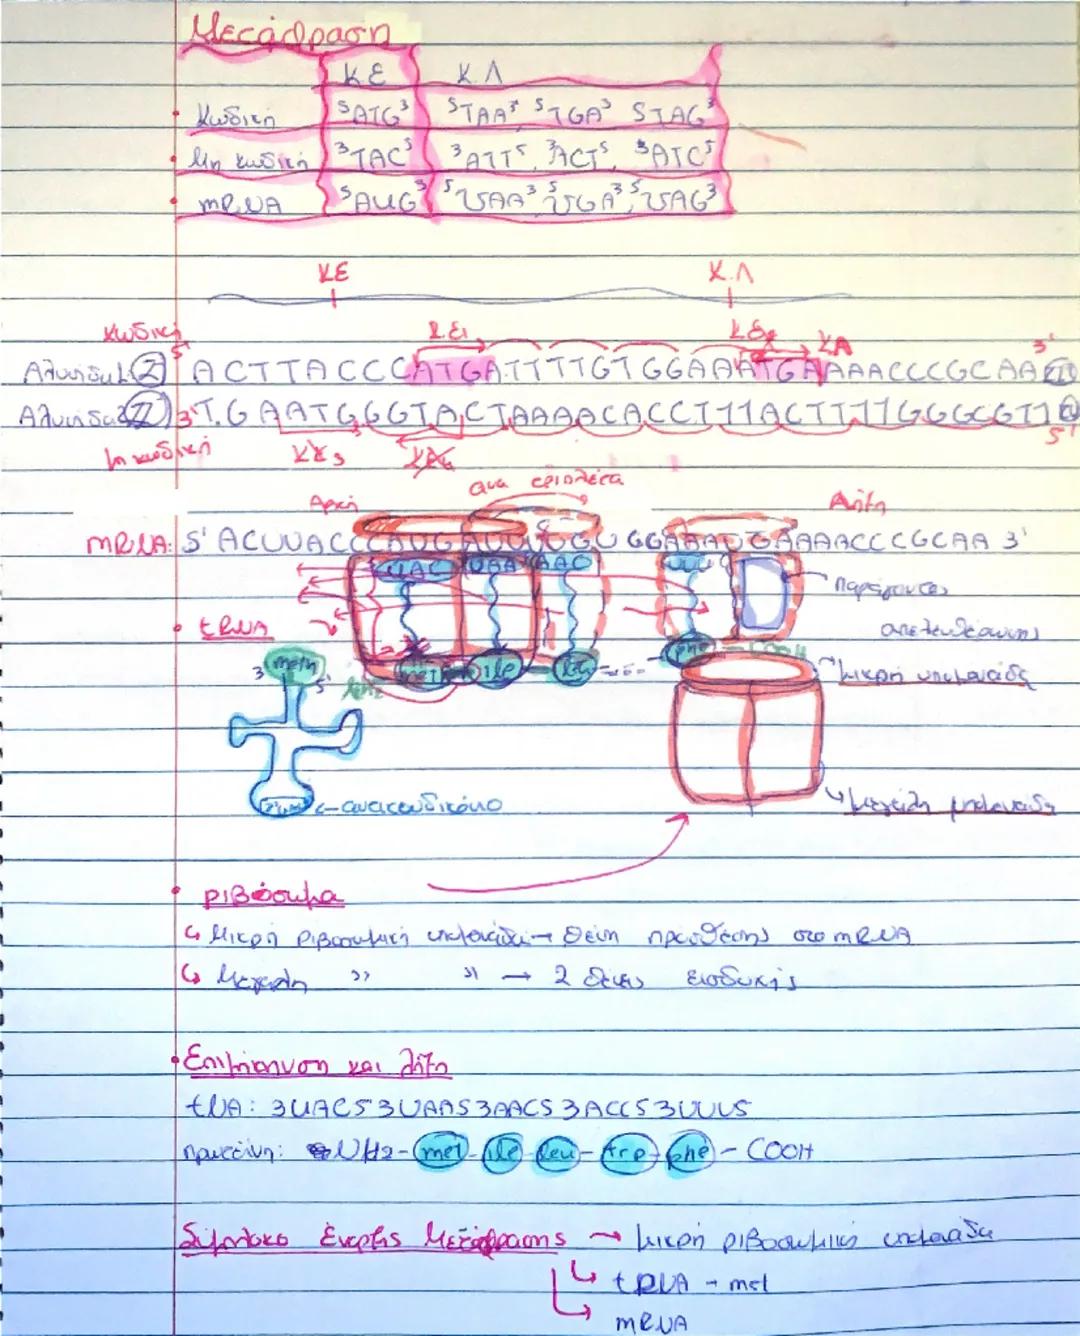 Μετάφραση
ΚΕ ΚΛ
Κωδική 5ATG3 5TAA3 5TGA3 5TAG3
Μη κωδική 3TAC5 3ATT5, 3ACT5, 3ATC5
mRNA 5AUG3 5UAA3 5UGA3, 5UAG3
ΚΕ Κ.Λ
Κωδική ΚΕ1 ΚΕ2 ΚΛ
Αλυσίδα 1 5' ACTTACCCATGATTTTGTGGAAATGAAAACCCGCAA 3'
Αλυσίδα 2 3' T.GAATGGGTACTAAAACACCTTTACTTTTGGGCGTT 5'
Μη κωδική ΚΕ3 ΚΛ4
ανα τριπλέτα
Αρχή Λήξη
mRNA: 5' ACUUACCCAUGAUUUUGUGGAAAUGAAAACCCGCAA 3'
UAC UAA AAC UUU
παράγοντες
απελευθέρωσης
tRNA
3' meth 5' met ile leu phe - COOH
μικρή υπομονάδα
← αντικωδικόνιο
μεγάλη υπομονάδα
ριβόσωμα
Μικρή ριβοσωμική υπομονάδα → θέση πρόσδεσης στο mRNA
Μεγάλη " " → 2 θέσεις εισδοχής
Επιμήκυνση και λήξη
tRNA: 3UAC5 3UAA5 3AAC5 3ACC5 3UUU5
πρωτεΐνη: NH2 - met - ile - leu - trp - phe - COOH
Σύμπλοκο έναρξης Μετάφρασης → μικρή ριβοσωμική υπομονάδα
tRNA - met
mRNA